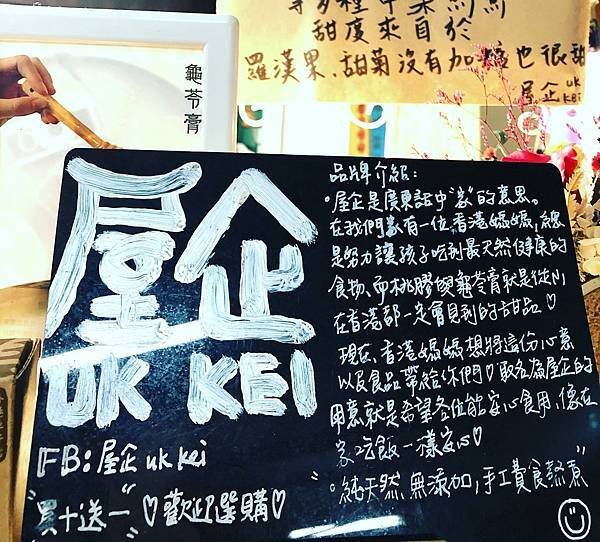 甜度來自於
羅漢果、甜菊沒有加糖也很甜
屋企 uk kei
龜苓膏
屋企
UK KEI
FB: 屋企 uk kei
"買十送一" ♡歡迎選購♡
品牌介紹:
。屋企是廣東話中"家"的意思。
在我們家有一位香港媽媽,總
是努力讓孩子吃到最天然健康的
食物、而桃膠與龜苓膏就是從小
在香港都一定會見到的甜品♡
現在、香港媽媽想將這份心意
以及食品帶給你們♡取名為屋企的
用意就是希望各位能安心食用,像在
家吃飯一樣安心♡
"。純天然,無添加,手工費食熬煮"